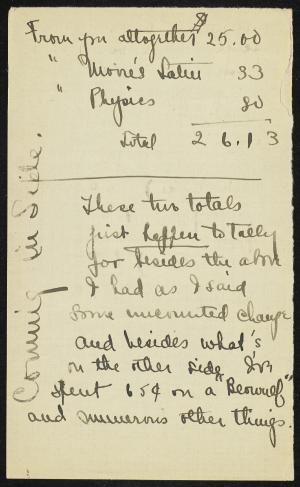 From you altogether $25.00
" Moore's Latin 33
" Physics 80
Total 26.13
These two totals
just happen to tally
for besides the above
I had as I said
some uncounted change
and besides what's
on the other side I've
spent 65¢ on a "Beowulf"
and numerous other things.
Coming in Side.